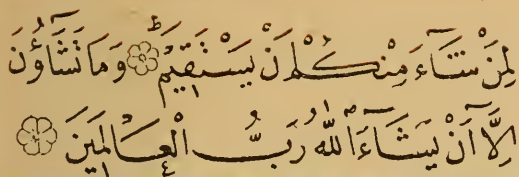 لِمَنْ شَآءَ مِنْكُمْ أَنْ يَسْتَقِيمَ وَمَا تَشَآؤُنَ
إِلَّا أَنْ يَشَآءَ اللّٰهُ رَبُّ الْعَالَمِينَ